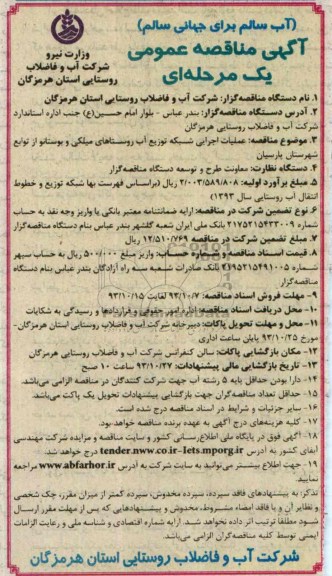 (آب سالم برای جهانی سالم)
آگهی مناقصه عمومی
یک مرحله‌ای
وزارت نیرو
شرکت آب و فاضلاب
روستایی استان هرمزگان
۱. نام دستگاه مناقصه‌گزار: شرکت آب و فاضلاب روستایی استان هرمزگان
۲. آدرس دستگاه مناقصه‌گزار: بندر عباس - بلوار امام حسین(ع) جنب اداره استاندارد
شرکت آب و فاضلاب روستایی هرمزگان
۳. موضوع مناقصه: عملیات اجرایی شبکه توزیع آب روستاهای میلکی و بوستانو از توابع
شهرستان پارسیان
۴. دستگاه نظارت: معاونت طرح و توسعه دستگاه مناقصه‌گزار
۵. مبلغ برآورد اولیه: ۲/۰۰۳/۵۸۹/۸۰۸ ریال (براساس فهرست بها شبکه توزیع و خطوط
انتقال آب روستایی سال ۱۳۹۳)
۶. نوع تضمین شرکت در مناقصه: ارایه ضمانتنامه معتبر بانکی یا واریز وجه نقد به حساب
شماره ۲۱۷۵۲۱۵۴۳۳۰۰۹ بانک ملی ایران شعبه گلشهر بندر عباس بنام دستگاه مناقصه‌گزار
۷. مبلغ تضمین شرکت در مناقصه ۱۲/۵۱۰/۷۶۹ ریال
۸. قیمت اسناد مناقصه و شماره حساب: واریز مبلغ ۵۰۰/۰۰۰ ریال به حساب سپهر
شماره ۲۱۹۵۲۱۵۴۹۱۰۰۵ بانک صادرات شعبه سه راه آزادگان بندر عباس بنام دستگاه
مناقصه‌گزار
۹- مهلت فروش اسناد مناقصه: ۹۳/۱۰/۷ لغایت ۹۳/۱۰/۱۵
۱۰- محل دریافت اسناد مناقصه: اداره امور حقوقی و قراردادها و رسیدگی به شکایات
۱۱- محل و مهلت تحویل پاکات: دبیرخانه شرکت آب و فاضلاب روستایی استان هرمزگان-
مورخ ۹۳/۱۰/۲۵ پایان ساعت اداری
۱۲- مکان بازگشایی پاکات: سالن کنفرانس شرکت آب و فاضلاب روستایی هرمزگان
۱۳- تاریخ بازگشایی مالی پیشنهادات: ۹۳/۱۰/۲۷ ساعت ۱۰ صبح
۱۴- دارا بودن حداقل پایه ۵ رشته آب جهت شرکت کنندگان در مناقصه الزامی می‌باشد.
۱۵- حداقل تعداد مناقصه‌گران جهت بازگشایی پیشنهادات تحویل یک پاکت می‌باشد.
۱۶- سایر جزئیات و شرایط در اسناد مناقصه درج شده است.
۱۷- کلیه هزینه‌های درج آگهی به عهده برنده مناقصه خواهد بود.
۱۸- آگهی فوق در پایگاه ملی اطلاع‌رسانی کشور و سایت مناقصه و مزایده شرکت مهندسی
آبفای کشور به آدرس tender.nww.co.ir-Iets.mporg.ir درج خواهد شد.
۱۹- جهت اطلاع بیشتر می‌توانید به سایت شرکت به آدرس www.abfarhor.ir مراجعه
نمایید.
تذکر: به پیشنهادهای فاقد سپرده، سپرده مخدوش، سپرده کمتر از میزان مقرر، چک شخصی
و نظایر آن و یا فاقد امضاء مشروط، مخدوش و پیشنهادهایی که پس از مهلت مقرر ارسال
شود مطلقا ترتیب اثر داده نخواهد شد. ارایه شماره اقتصادی و شناسه ملی و رعایت الزامات
ایمنی توسط کلیه مناقصه‌گران الزامی می‌باشد.
شرکت آب و فاضلاب روستایی استان هرمزگان